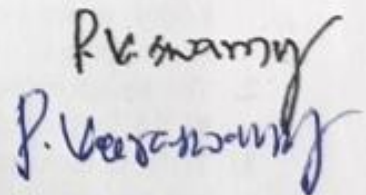 P.V. Swamy
P. Veeraswamy